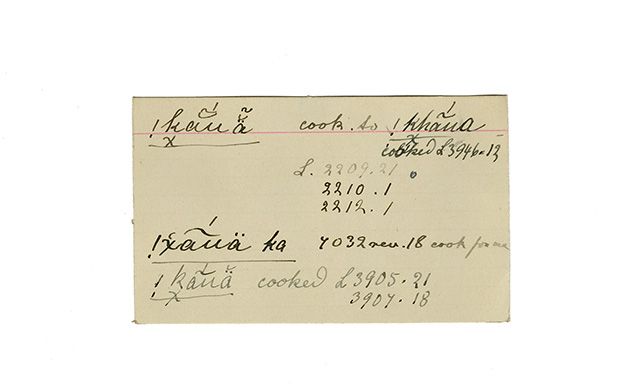 !k͓ã́nã̈ cook. to !k͓hã́na
cooked L3946.12
L. 2209.21
2210.1
2212.1
!x̃ã́nä ka 7032 rev. 18 cook for me
!k͓ã́nä̃ cooked L3905.21
3907.18